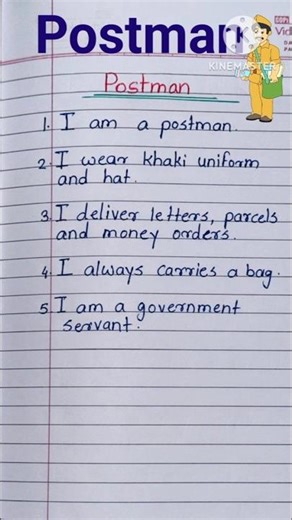 Postman
KINEMASTER
Postman
1. I am a postman.
2. I wear khaki uniform
and hat.
3. I deliver letters, parcels
and money orders.
4. I always carries a bag.
5. I am a government
servant.